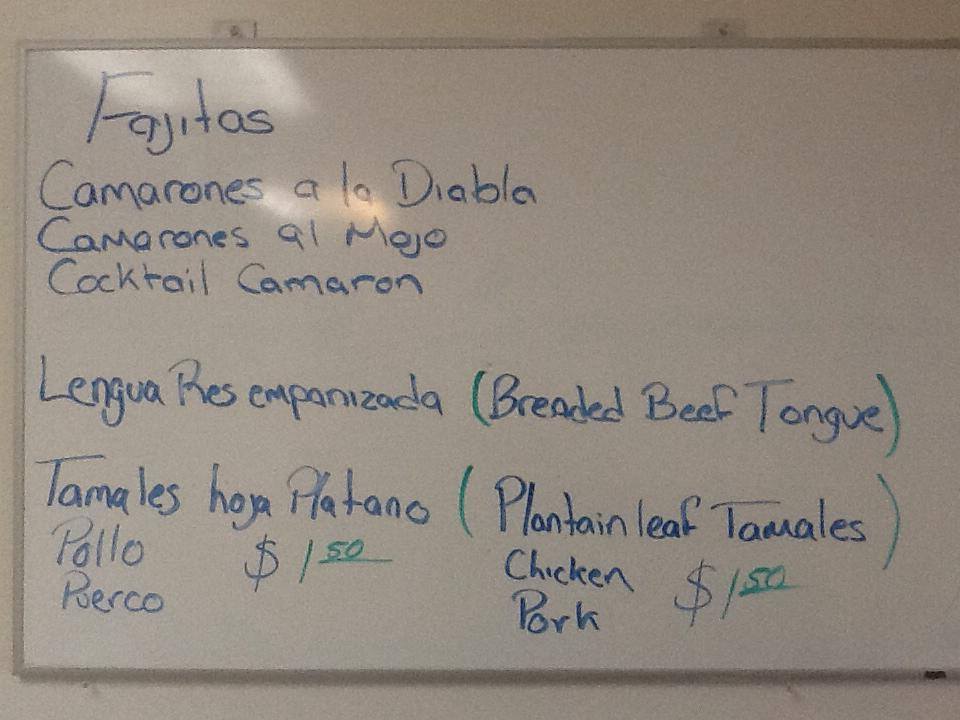 Fajitas
Camarones a la Diabla
Camarones al Mojo
Cocktail Camaron
Lengua Res empanizada (Breaded Beef Tongue)
Tamales hoja Platano (Plantain leaf Tamales)
Pollo $1.50 Chicken $1.50
Puerco Pork